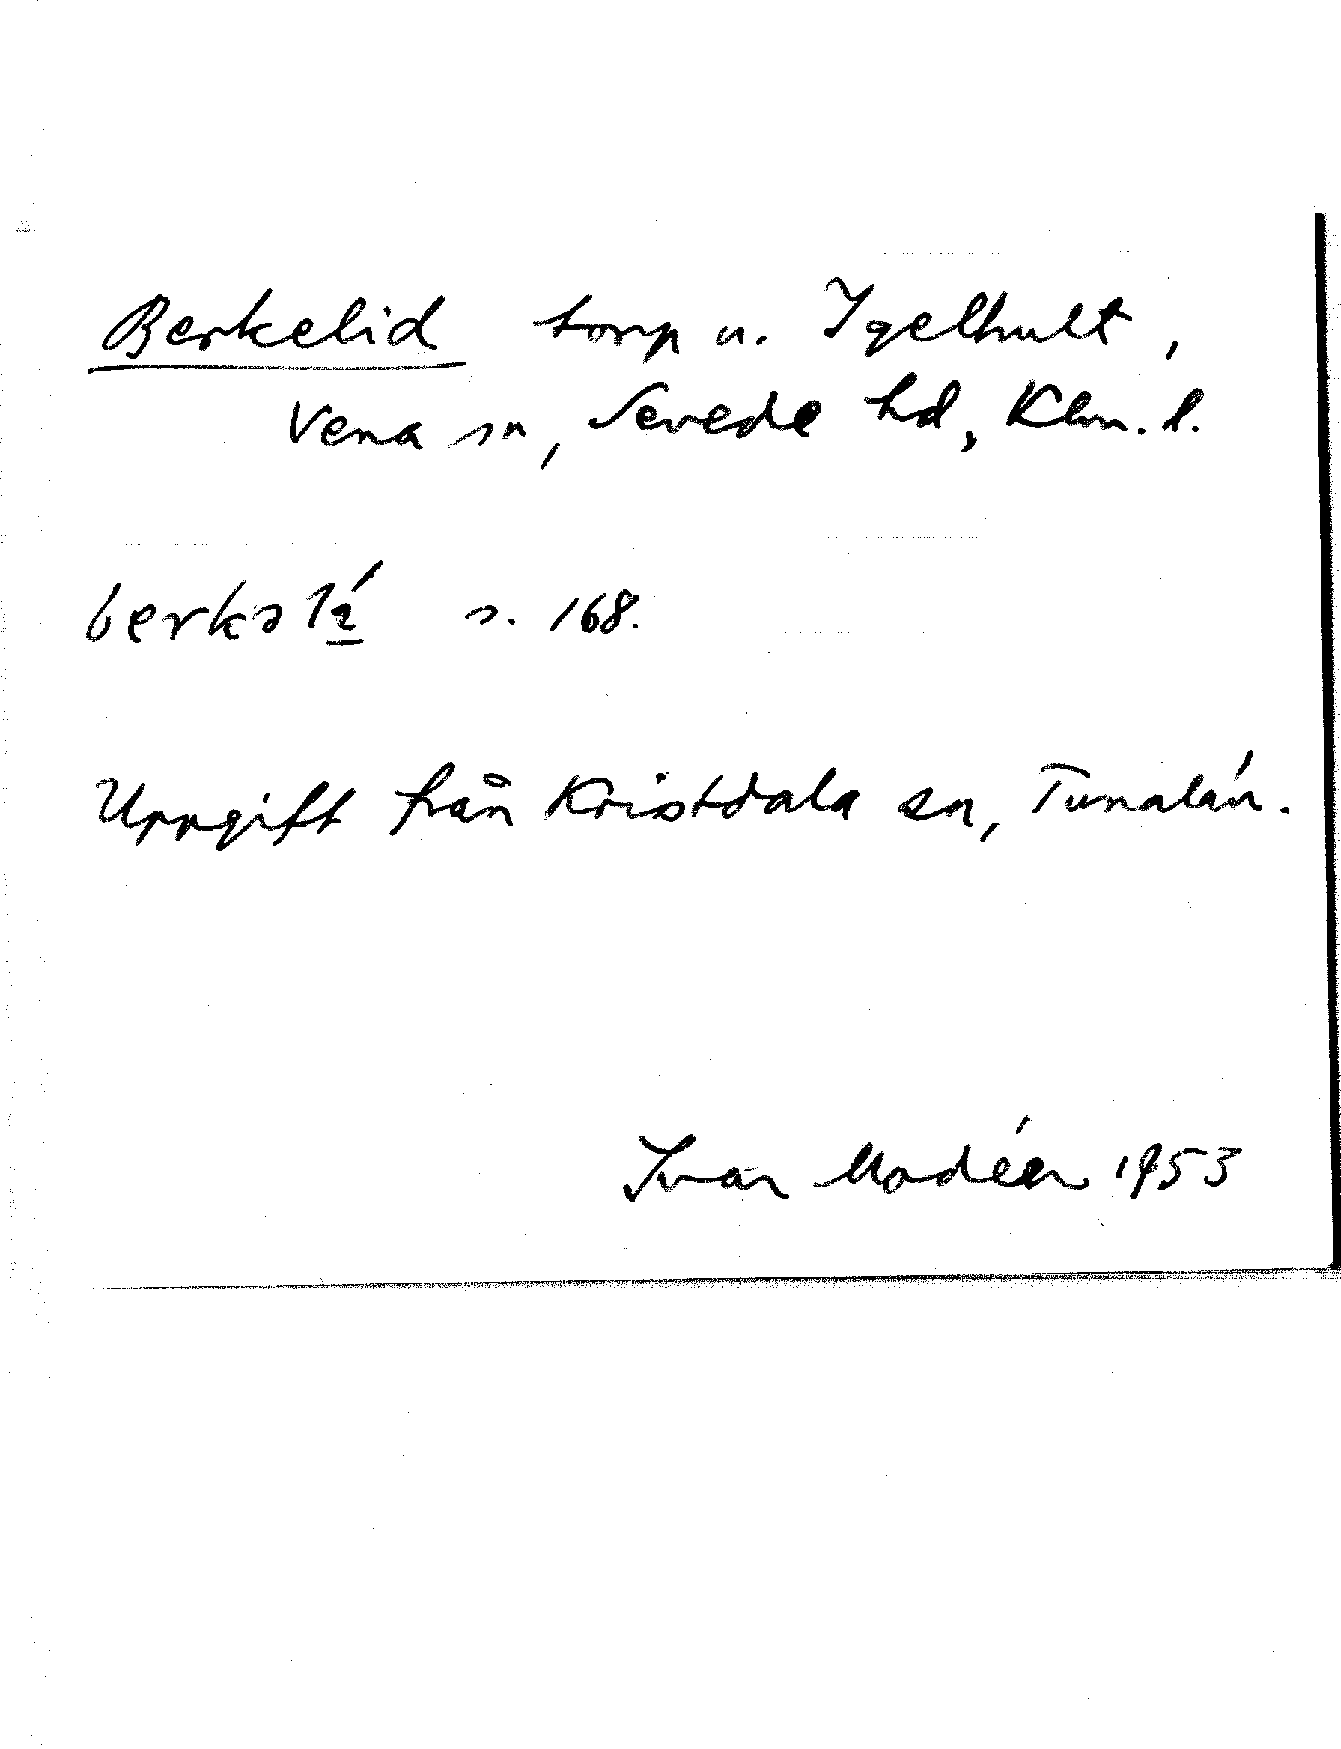 Berkelid torp u. Igelhult,
Vena sn, Sevede hd, Klm. l.
s. 168.
Uppgift från Kristdala sn, Tunalän.
Ivar Modéer 1953